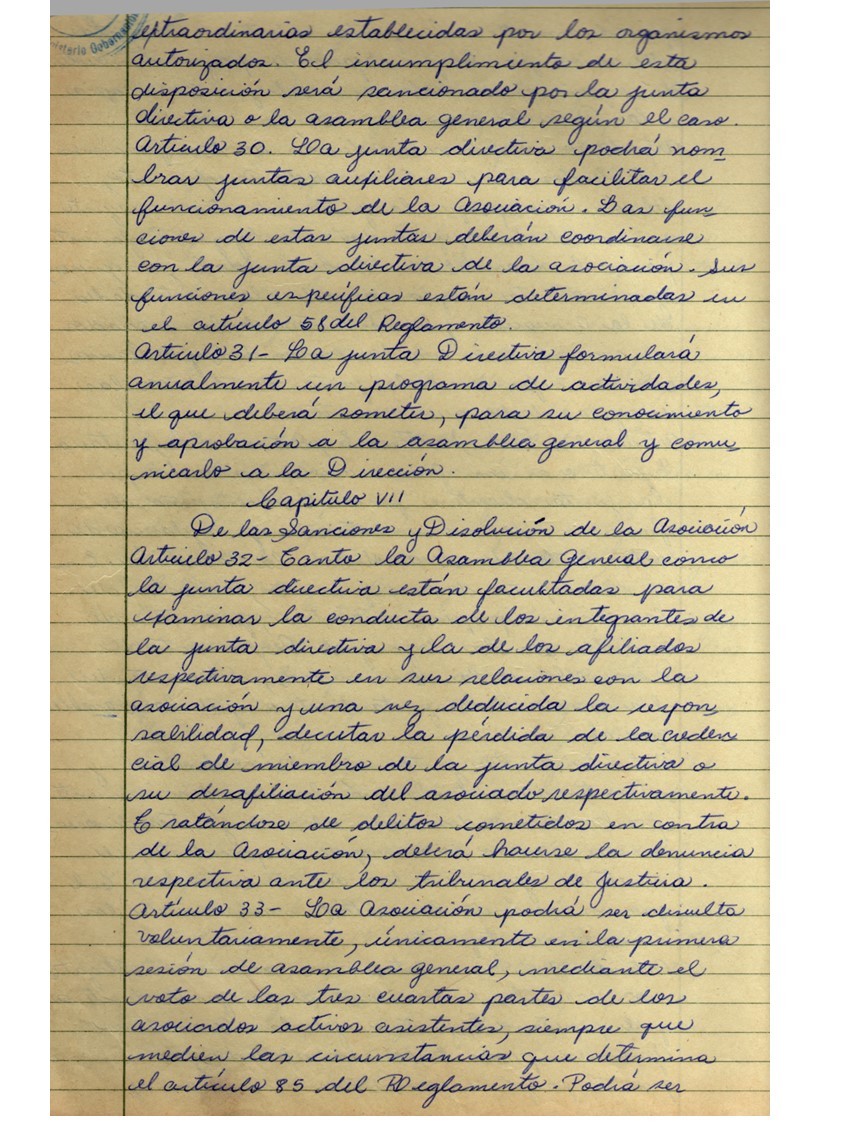 extraordinarias establecidas por los organismos
autorizados. El incumplimiento de esta
disposición será sancionado por la junta
directiva o la asamblea general según el caso.
Artículo 30. La junta directiva podrá nom
brar juntas auxiliares para facilitar el
funcionamiento de la Asociación. Las fun
ciones de estas juntas deberán coordinarse
con la junta directiva de la asociación. Sus
funciones específicas están determinadas en
el artículo 58 del Reglamento.
Artículo 31- La junta Directiva formulará
anualmente un programa de actividades,
el que deberá someter, para su conocimiento
y aprobación a la asamblea general y comu
nicarlo a la Dirección.
Capitulo VII
De las Sanciones y Disolución de la Asociación
Artículo 32- Tanto la Asamblea General como
la junta directiva están facultadas para
examinar la conducta de los integrantes de
la junta directiva y la de los afiliados
respectivamente en sus relaciones con la
asociación y una vez deducida la respon
sabilidad, decretar la pérdida de la creden
cial de miembro de la junta directiva o
su desafiliación del asociado respectivamente.
Tratándose de delitos cometidos en contra
de la Asociación, deberá hacerse la denuncia
respectiva ante los tribunales de Justicia.
Artículo 33- La Asociación podrá ser disuelta
voluntariamente, únicamente en la primera
sesión de asamblea general, mediante el
voto de las tres cuartas partes de los
asociados activos asistentes, siempre que
medien las circunstancias que determina
el artículo 85 del Reglamento. Podrá ser